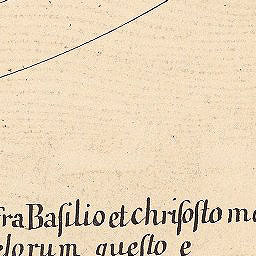 fra Baſilio et chriſoſto mo
elorum queſto e